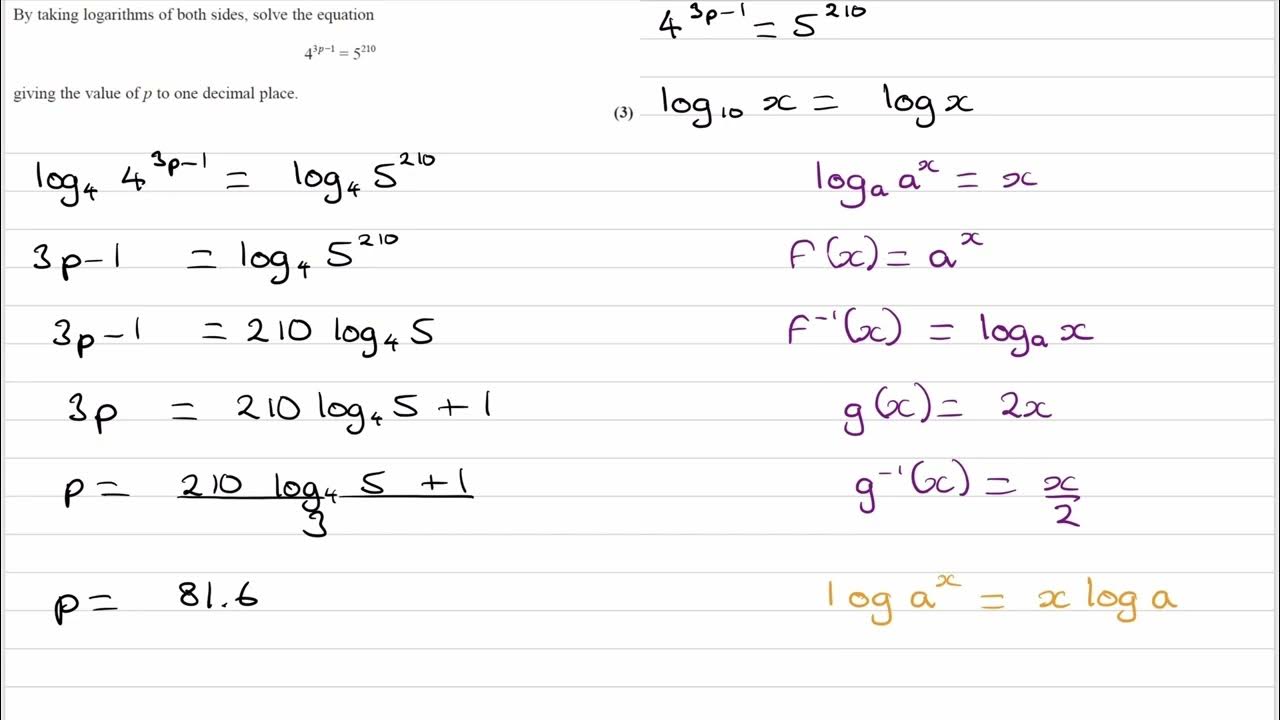 By taking logarithms of both sides, solve the equation
4^{3p−1} = 5^{210}
giving the value of p to one decimal place.
(3)
4^{3p−1} = 5^{210}
log₁₀ x = log x
log₄ 4^{3p−1} = log₄ 5^{210}
3p−1 = log₄ 5^{210}
3p−1 = 210 log₄ 5
3p = 210 log₄ 5 + 1
p = \frac{210 log₄ 5 + 1}{3}
p = 81.6
logₐ a^x = x
f(x) = a^x
f^{-1}(x) = logₐ x
g(x) = 2x
g^{-1}(x) = \frac{x}{2}
log a^x = x log a